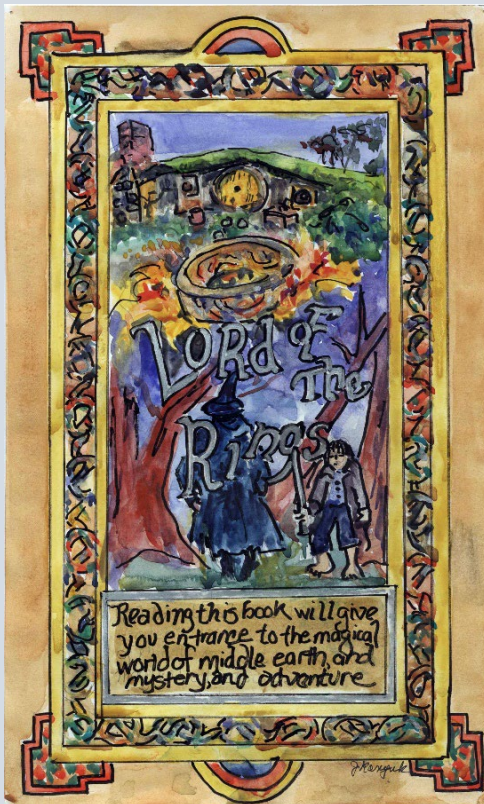 LORd OF
The
Rings
Reading this book will give
you entrance to the magical
world of middle earth, and
mystery, and adventure